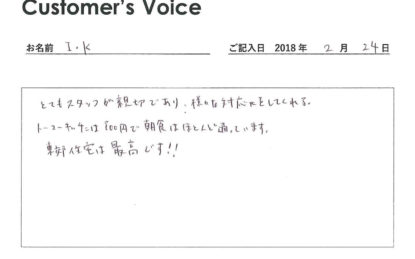 Customer's Voice
お名前 I.K ご記入日 2018年 2月 24日
とてもスタッフが親切であり、様々な対応をしてくれる。
トーコーキッチンは100円で朝食はほとんど通っています。
東郊住宅は最高です!!